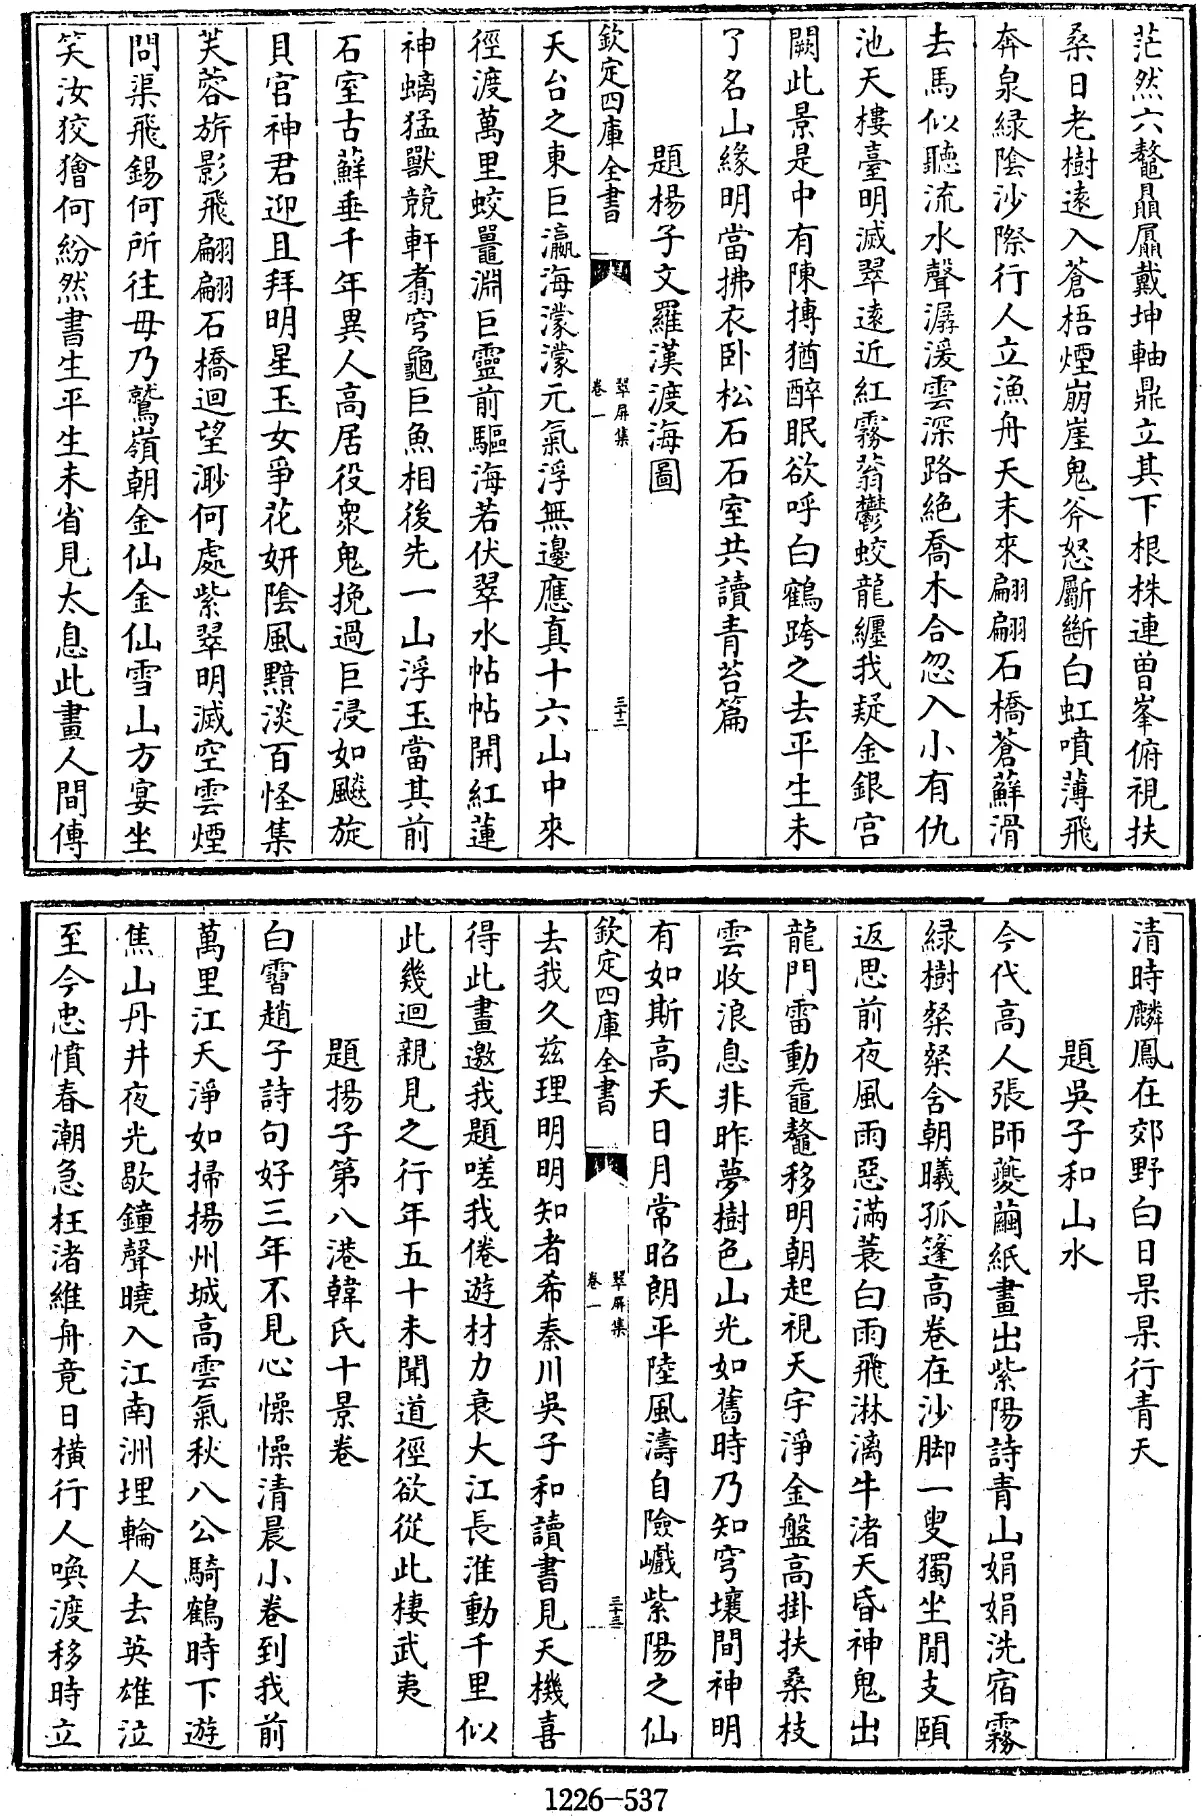 茫然六鼇贔屭戴坤軸鼎立其下根株連曽峯俯視扶
桑日老樹遠入蒼梧煙崩崖鬼斧怒斸斷白虹噴薄飛
奔泉緑陰沙際行人立漁舟天末來翩翩石橋蒼蘚滑
去馬似聽流水聲潺湲雲深路絶喬木合忽入小有仇
池天樓臺明滅翠遠近紅霧蓊鬱蛟龍纒我疑金銀宫
闕此景是中有陳摶猶醉眠欲呼白鶴跨之去平生未
了名山緣明當拂衣卧松石石室共讀青苔篇
題楊子文羅漢渡海圖
欽定四庫全書
翠屏集
卷一
三十二
天台之東巨瀛海濛濛元氣浮無邊應真十六山中來
徑渡萬里蛟鼉淵巨靈前驅海若伏翠水帖帖開紅蓮
神螭猛獸競軒翥穹龜巨魚相後先一山浮玉當其前
石室古蘚垂千年異人高居役衆鬼挽過巨浸如飈旋
貝官神君迎且拜明星玉女爭花妍陰風黯淡百怪集
芙蓉旂影飛翩翩石橋迴望渺何處紫翠明滅空雲煙
問渠飛錫何所往毋乃鷲嶺朝金仙金仙雪山方宴坐
笑汝狡獪何紛然書生平生未省見太息此畫人間傳
清時麟鳳在郊野白日杲杲行青天
題吳子和山水
今代高人張師夔繭紙畫出紫陽詩青山娟娟洗宿霧
緑樹粲粲含朝曦孤篷高卷在沙脚一叟獨坐閒支頤
返思前夜風雨惡滿蓑白雨飛淋漓牛渚天昏神鬼出
龍門雷動黿鼇移明朝起視天宇淨金盤高掛扶桑枝
雲收浪息非昨夢樹色山光如舊時乃知穹壤間神明
有如斯高天日月常昭朗平陸風濤自險巇紫陽之仙
欽定四庫全書
翠屏集
卷一
三十三
去我久兹理明明知者希秦川吳子和讀書見天機喜
得此畫邀我題嗟我倦遊材力衰大江長淮動千里似
此幾迴親見之行年五十未聞道徑欲從此棲武夷
題揚子第八港韓氏十景卷
白霫趙子詩句好三年不見心懆懆清晨小卷到我前
萬里江天淨如掃揚州城高雲氣秋八公騎鶴時下遊
焦山丹井夜光歇鐘聲曉入江南洲埋輪人去英雄泣
至今忠憤春潮急枉渚維舟竟日横行人喚渡移時立
1226-537